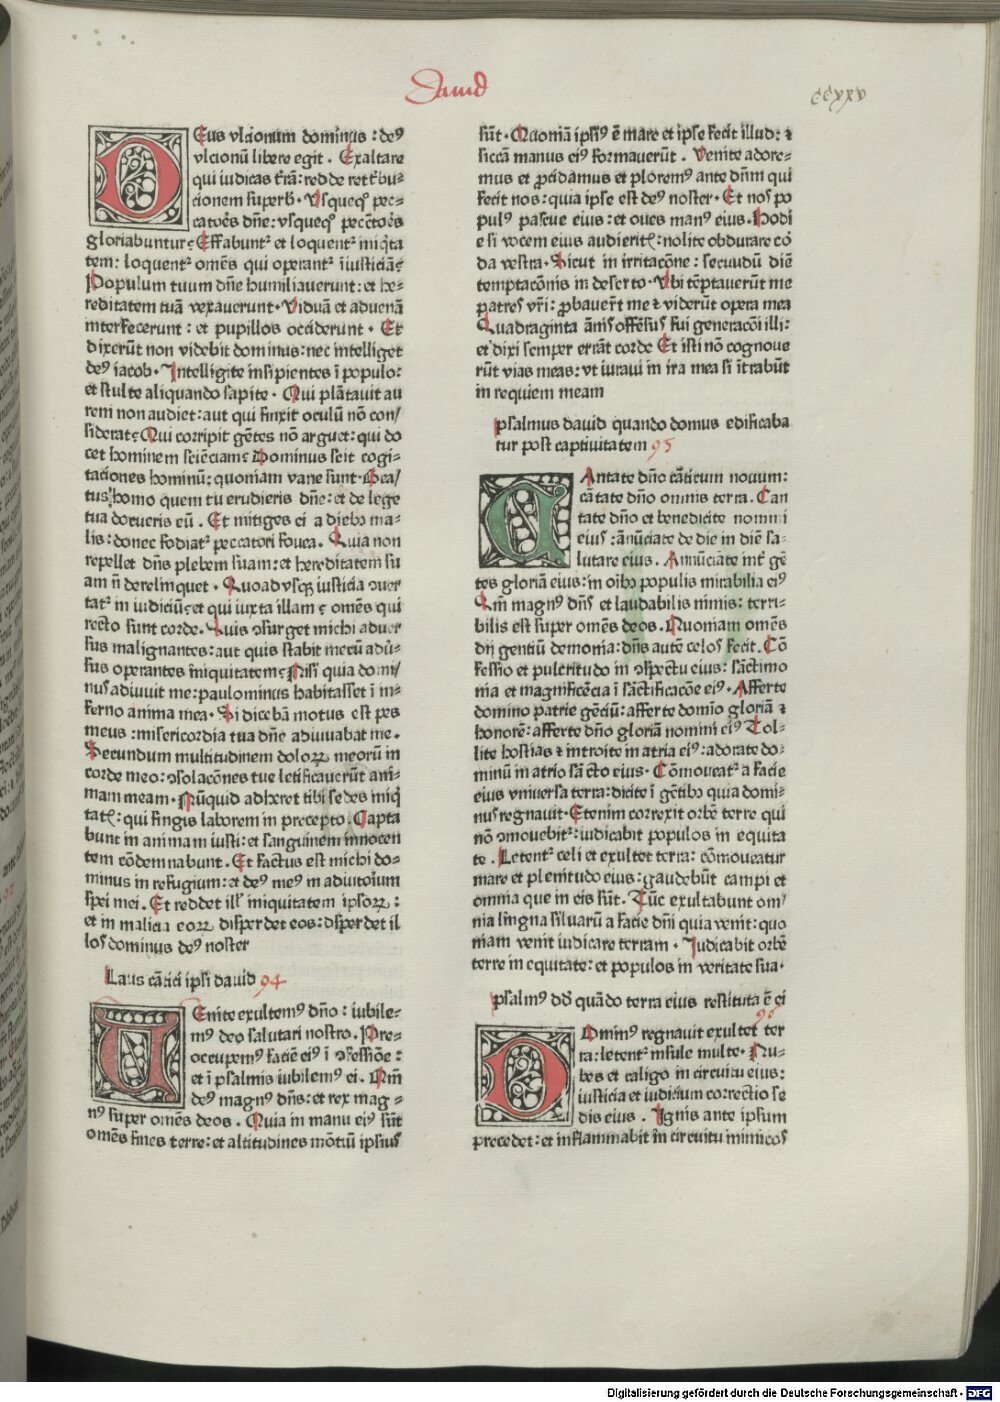 Dauid
ccxxv
DEus vltionum dominus : deꝰ
vltionū libere egit . Exaltare
qui iudicas t̄rā: redde ret̄bu⸗
cionem superb̓ . Vsquequo pec⸗
catoēs dn̄e: vsquequo pecc̄toēs
gloriabuntur: Effabunt᷑ et loquent᷑ iniq̄ta
tem: loquent᷑ om̄s qui operant᷑ ī iusticiā:
Populum tuum dn̄e humiliauerunt: et he⸗
reditatem tuā vexauerunt . Viduā et aduenā
interfecerunt : et pupillos occiderunt . Et
dixerūt non videbit dominus: nec intelliget
deꝰ iacob . Intelligite insipientes ī populo:
et stulte aliquando sapite . Qui plātauit au
rem non audiet: aut qui finxit oculū nō con/
siderat: Qui corripit gētes nō arguet: qui do
cet hominem sciēciam: Dominus scit cogi⸗
taciones hominū: quoniam vane sunt . Bea/
tus homo quem tu erudieris dn̄e: et de lege
tua docueris eū . Et mitiges ei a diebꝰ ma⸗
lis: donec fodiat᷑ peccatori fouea . Quia non
repellet dn̄s plebem suam: et hereditatem su
am n̄ derelinquet . Quoadvsqꝫ iusticia ↄuer
tat᷑ in iudiciū: et qui iuxta illam: om̄s qui
recto sunt corde . Quis ↄsurget michi aduer
sus malignantes: aut quis stabit mecū adū⸗
sus operantes īniquitatem: Nisi quia domi/
nus adiuuit me: paulominus habitasset ī in⸗
ferno anima mea . Si dicebā motus est pes
meus : misericordia tua dn̄e adiuuabat me .
Secundum multitudinem doloꝝ meorū in
corde meo: ↄsolacōnes tue letificauerūt ani⸗
mam meam . Nūquid adheret tibi sedes iniq̄
tat᷑: qui fingis laborem in precepto . Capta
bunt in animam iusti: et sanguinem innocen
tem cōdemnabunt . Et factus est michi do⸗
minus in refugium: et deꝰ meꝰ in adiutorium
spei mei . Et reddet ill᷑ iniquitatem ipsoꝝ :
et in malicia eoꝝ disperdet eos: disperdet il
los dominus deꝰ noster
Laus cātici ipsi dauid 94
VEnite exultemꝰ dn̄o : iubile⸗
mꝰ deo salutari nostro . Pre⸗
occupemꝰ faciē eiꝰ ī ↄfessiōe :
et ī psalmis iubilemꝰ ei . Qm̄
deꝰ magnꝰ dn̄s: et rex mag⸗
nꝰ super om̄s deos . Quia in manu eiꝰ sūt
om̄s fines terre: et altitudines mōtiū ipsius
sūt . Quoniā ipsiꝰ ē mare et ipse fecit illud: ⁊
siccā manus eiꝰ formauerūt . Venite adore⸗
mus et ꝓcidamus et ploremꝰ ante dn̄m qui
fecit nos: quia ipse est deꝰ noster . Et nos po
pulꝰ pascue eius: et oues manꝰ eius . Hodi
e si vocem eius audierit᷑: nolite obdurare cō
da vestra . Sicut in irritacōne: secundū diē
temptacōnis in deserto . Vbi tēptauerūt me
patres vr̄i: ꝓbauer̄t me ⁊ viderūt opera mea
Quadraginta ānis offēsus fui generacōi illi:
et dixi semper errāt corde Et isti nō cognoue
rūt vias meas: vt iuraui in ira mea si ītrabūt
in requiem meam
psalmus dauid quando domus edificaba
tur post captiuitatem 95
CAntate dn̄o cāticum nouum:
cātate dn̄o omnis terra . Can
tate dn̄o et benedicite nomini
eius : ānūciate de die in diē sa⸗
lutare eius . Annūciate int᷑ gē
tes gloriā eius: in oībꝰ populis mirabilia eiꝰ
Qm̄ magnꝰ dn̄s et laudabilis nimis: terri⸗
bilis est super om̄s deos . Quoniam om̄s
dij gentiū demonia: dn̄s autē celos fecit . Cō
fessio et pulcritudo in ↄspectu eius: sāctimo
nia et magnificēcia ī sāctificacōe eiꝰ . Afferte
domino patrie gētiū: afferte domīo gloriā ⁊
honorē: afferte dn̄o gloriā nomini eiꝰ Tol⸗
lite hostias ⁊ introite in atria eiꝰ: adorate do⸗
minū in atrio sācto eius . Cōmoueat᷑ a facie
eius vniuersa terra: dicite ī gētibꝰ quia domi⸗
nus regnauit . Etenim correxit orbē terre qui
nō ↄmouebit᷑: iudicabit populos in equita
te . Letent᷑ celi et exultet terra: cōmoueatur
mare et plenitudo eius: gaudebūt campi et
omnia que in eis sūt . Tūc exultabunt om/
nia lingna siluarū a facie dn̄i quia venit: quo
niam venit iudicare terram . Iudicabit orbē
terre in equitate: et populos in veritate sua .
psalmꝰ dd̓ quādo terra eius restituta ē ei
96
DOminꝰ regnauit exultet ter
ra: letent᷑ insule multe . Nu⸗
bes et caligo in circuitu eius:
iusticia et iudicium correctio se
dis eius . Ignis ante ipsum
precedet: et inflammabit in circuitu inimicos
Digitalisierung gefördert durch die Deutsche Forschungsgemeinschaft - DFG